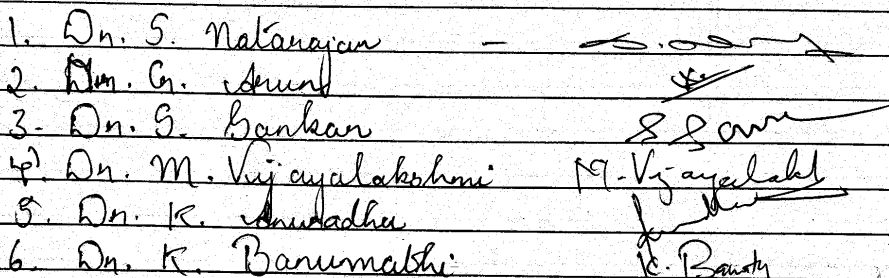 1. Dr. S. Natarajan -
2. Dr. G. Arun
3. Dr. S. Sankar
4. Dr. M. Vijayalakshmi M. Vijayalaks
5. Dr. K. Anuradha
6. Dr. K. Banumathi K. Banuty